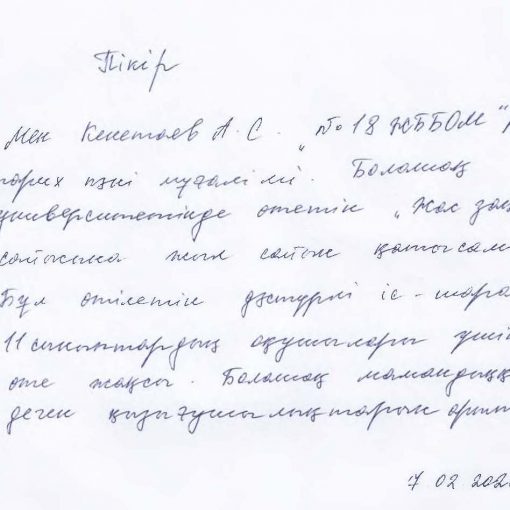 Пікір
Мен Кенетаев А.С. "№18 ЖББОМ"
тарих пәні мұғалімі. Болашақ
университетінде өтетін "Жас заң
сайысына жыл сайын қатысам
Бұл өтілетін дәстүрлі іс-шара
11 сыныптардың оқушылары үшін
өте жақсы. Болашақ мамандыққ
деген қызығушылықтарын артт
7 02 202